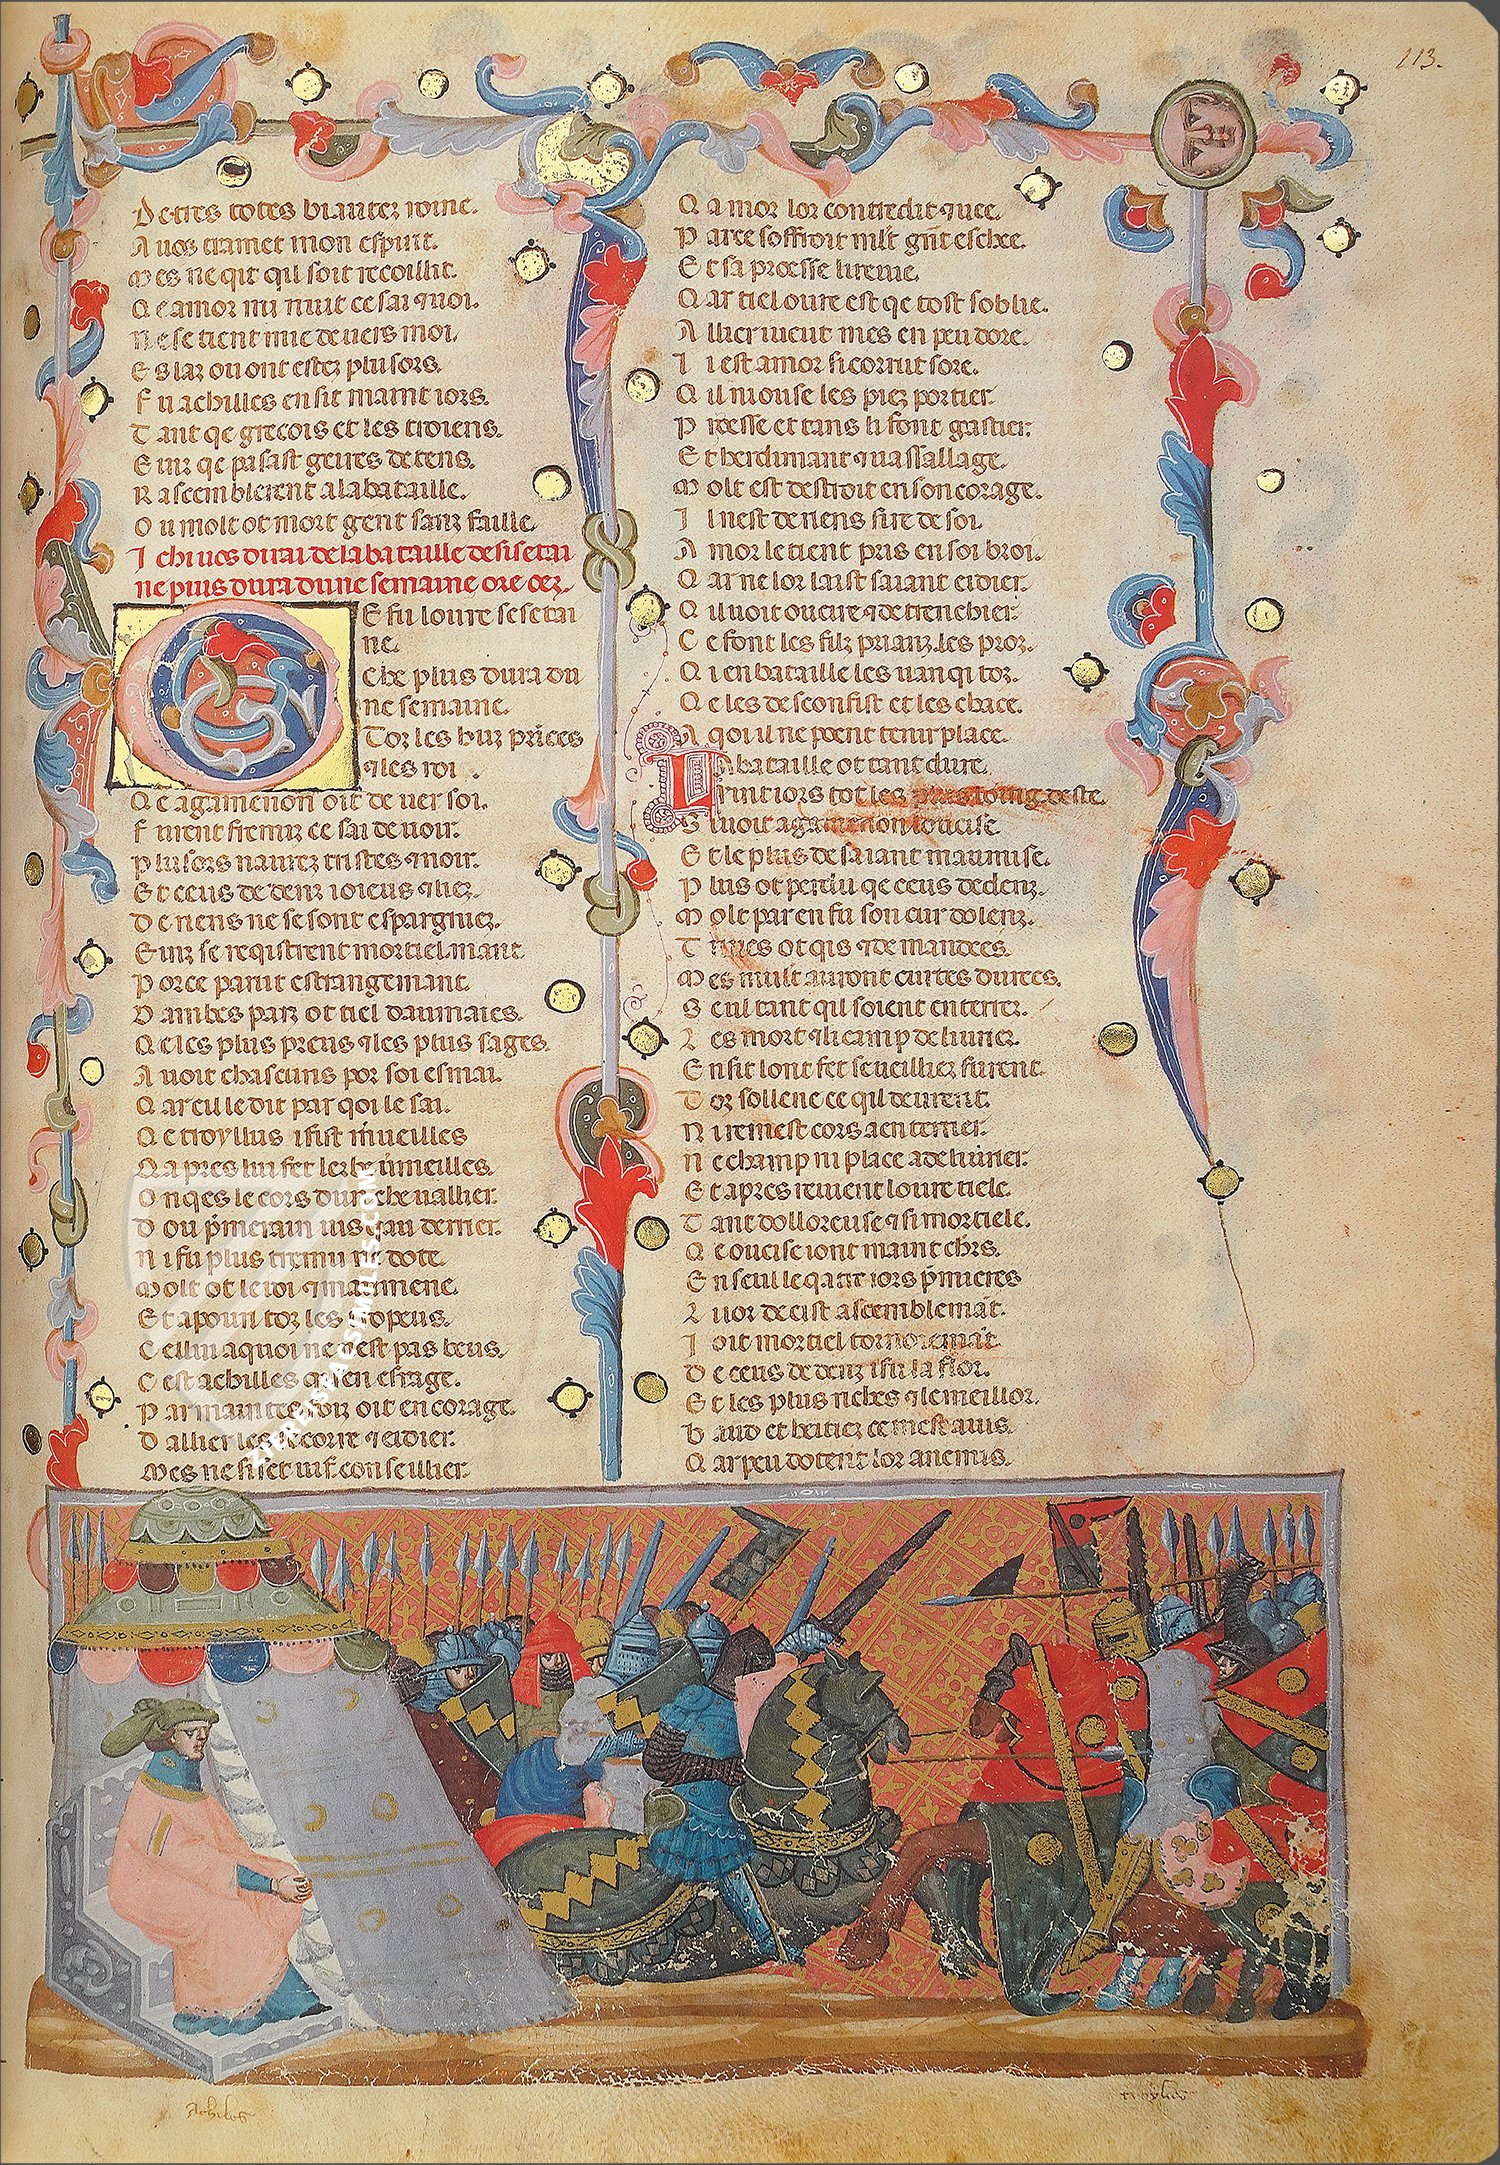 113.
De tres totes biautez roine.
A vos tramet mon espirit.
Mes ne qit qil soit recoillit.
Qe amor nu nuut ce sai ⁊ uoi.
Ne se tient mie deuers moi.
E slaz ou ont estez plusors.
F u achilles en sit maint iors.
T ant qe grecois et les troiens.
E inz qe pasast geires de tens.
R asemblerent a la bataille.
O u molt ot mort gent sanz faille.
I chi uos dirai de la bataille desisetai
ne plus dura dune semaine ore oez.
E fu loure sesetai
ne.
Che plus dura du
ne semaine.
Toz les buz princes
⁊ les roi.
Qe agamenon oit de uer soi.
F urent semuz ce sai de uoir.
P lusors naurez tristes ⁊ noir.
Et ceus dedenz ioieus ⁊ liez.
De riens ne se sont espargniez.
Einz se reqistrent mortielmant
P orce parut estrangemant.
D ambes parz ot tiel daumaies.
Qe les plus preus ⁊ les plus sages.
A uoit chascuns por soi esmai.
Q ar cu le dit par qoi le sai.
Qe troyllus i fist mueilles
Q apres lui fet lerbe uimeilles.
O nqes le cors dun cheuallier.
D ou pmerain iusqau derrier.
N i fu plus cremu ne dote.
Molt ot le roi ⁊ mainmene.
Et apouri toz les tropeus.
C ellui a quoi ne nest pas beus.
C est achilles qi sen esrage.
P ar maintes foiz oit en corage.
D allier les secorre ⁊ eidier.
Mes ne si set uif conseillier.
Q amor lor contredit ⁊ uee.
P arce soffroit mlt grit eschee.
Et sa proesse li reme.
Q ar tiel oure est qe tost soblie.
A lli cruieut mes en peu dore.
I i est amor si cornut sore.
Q il n ouse les piez portier.
P roesse et tans li font gastier.
Et herdimant ⁊ uassallage.
Molt est destroit en son corage.
I l nest de riens sire de soi.
A mor le tient pris en soi broi.
Q ar ne lor laist faiant eidier.
Q il uoit oucire ⁊ detrenchier.
C e font les filz prianz les proz.
Q i en bataille les uanqi toz.
Q e les desconfist et les chace.
A qoi il ne poent tenir place.
La bataille ot tant dure.
Et uoit agamenon
Et le plus de sa iant maumise.
P lus ot perdu qe ceus dedenz.
Molt par en fu son cuir dolenz.
T riues ot qis ⁊ demandees.
Mes mult auront curtes durees.
S eul tant qil soient enterrez.
L es mort ⁊ li camp deliurier.
En sit lont fet se ueilliez furent.
Toz sollene ce qil deurent.
N i remest cors a enterrier.
Ne champ ni place a deliurier.
Et apres reuient loure tiele.
Tant dolloreuse ⁊ si mortiele.
Qe oucise iont maint chrs.
En seul le qart iors pmieres
Auor de cist asemblemat.
I oit mortiel tornoiemat.
De ceus dedenz i fu la flor.
Et les plus riches ⁊ le meillor.
Baud et heitiez ce mest auis.
Q ar peu dotent lor anemis.
ZIEREIS FACSIMILES.COM
Achiles
troylus